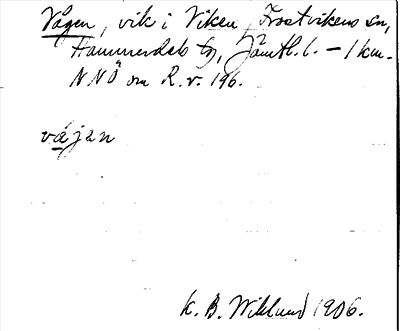 Vågen, vik i Viken, Frostvikens sn,
Hammerdals tg, Jämtl. l. – 1 km.
NNÖ om R.r. 196.
våjan
K. B. Wiklund 1906.